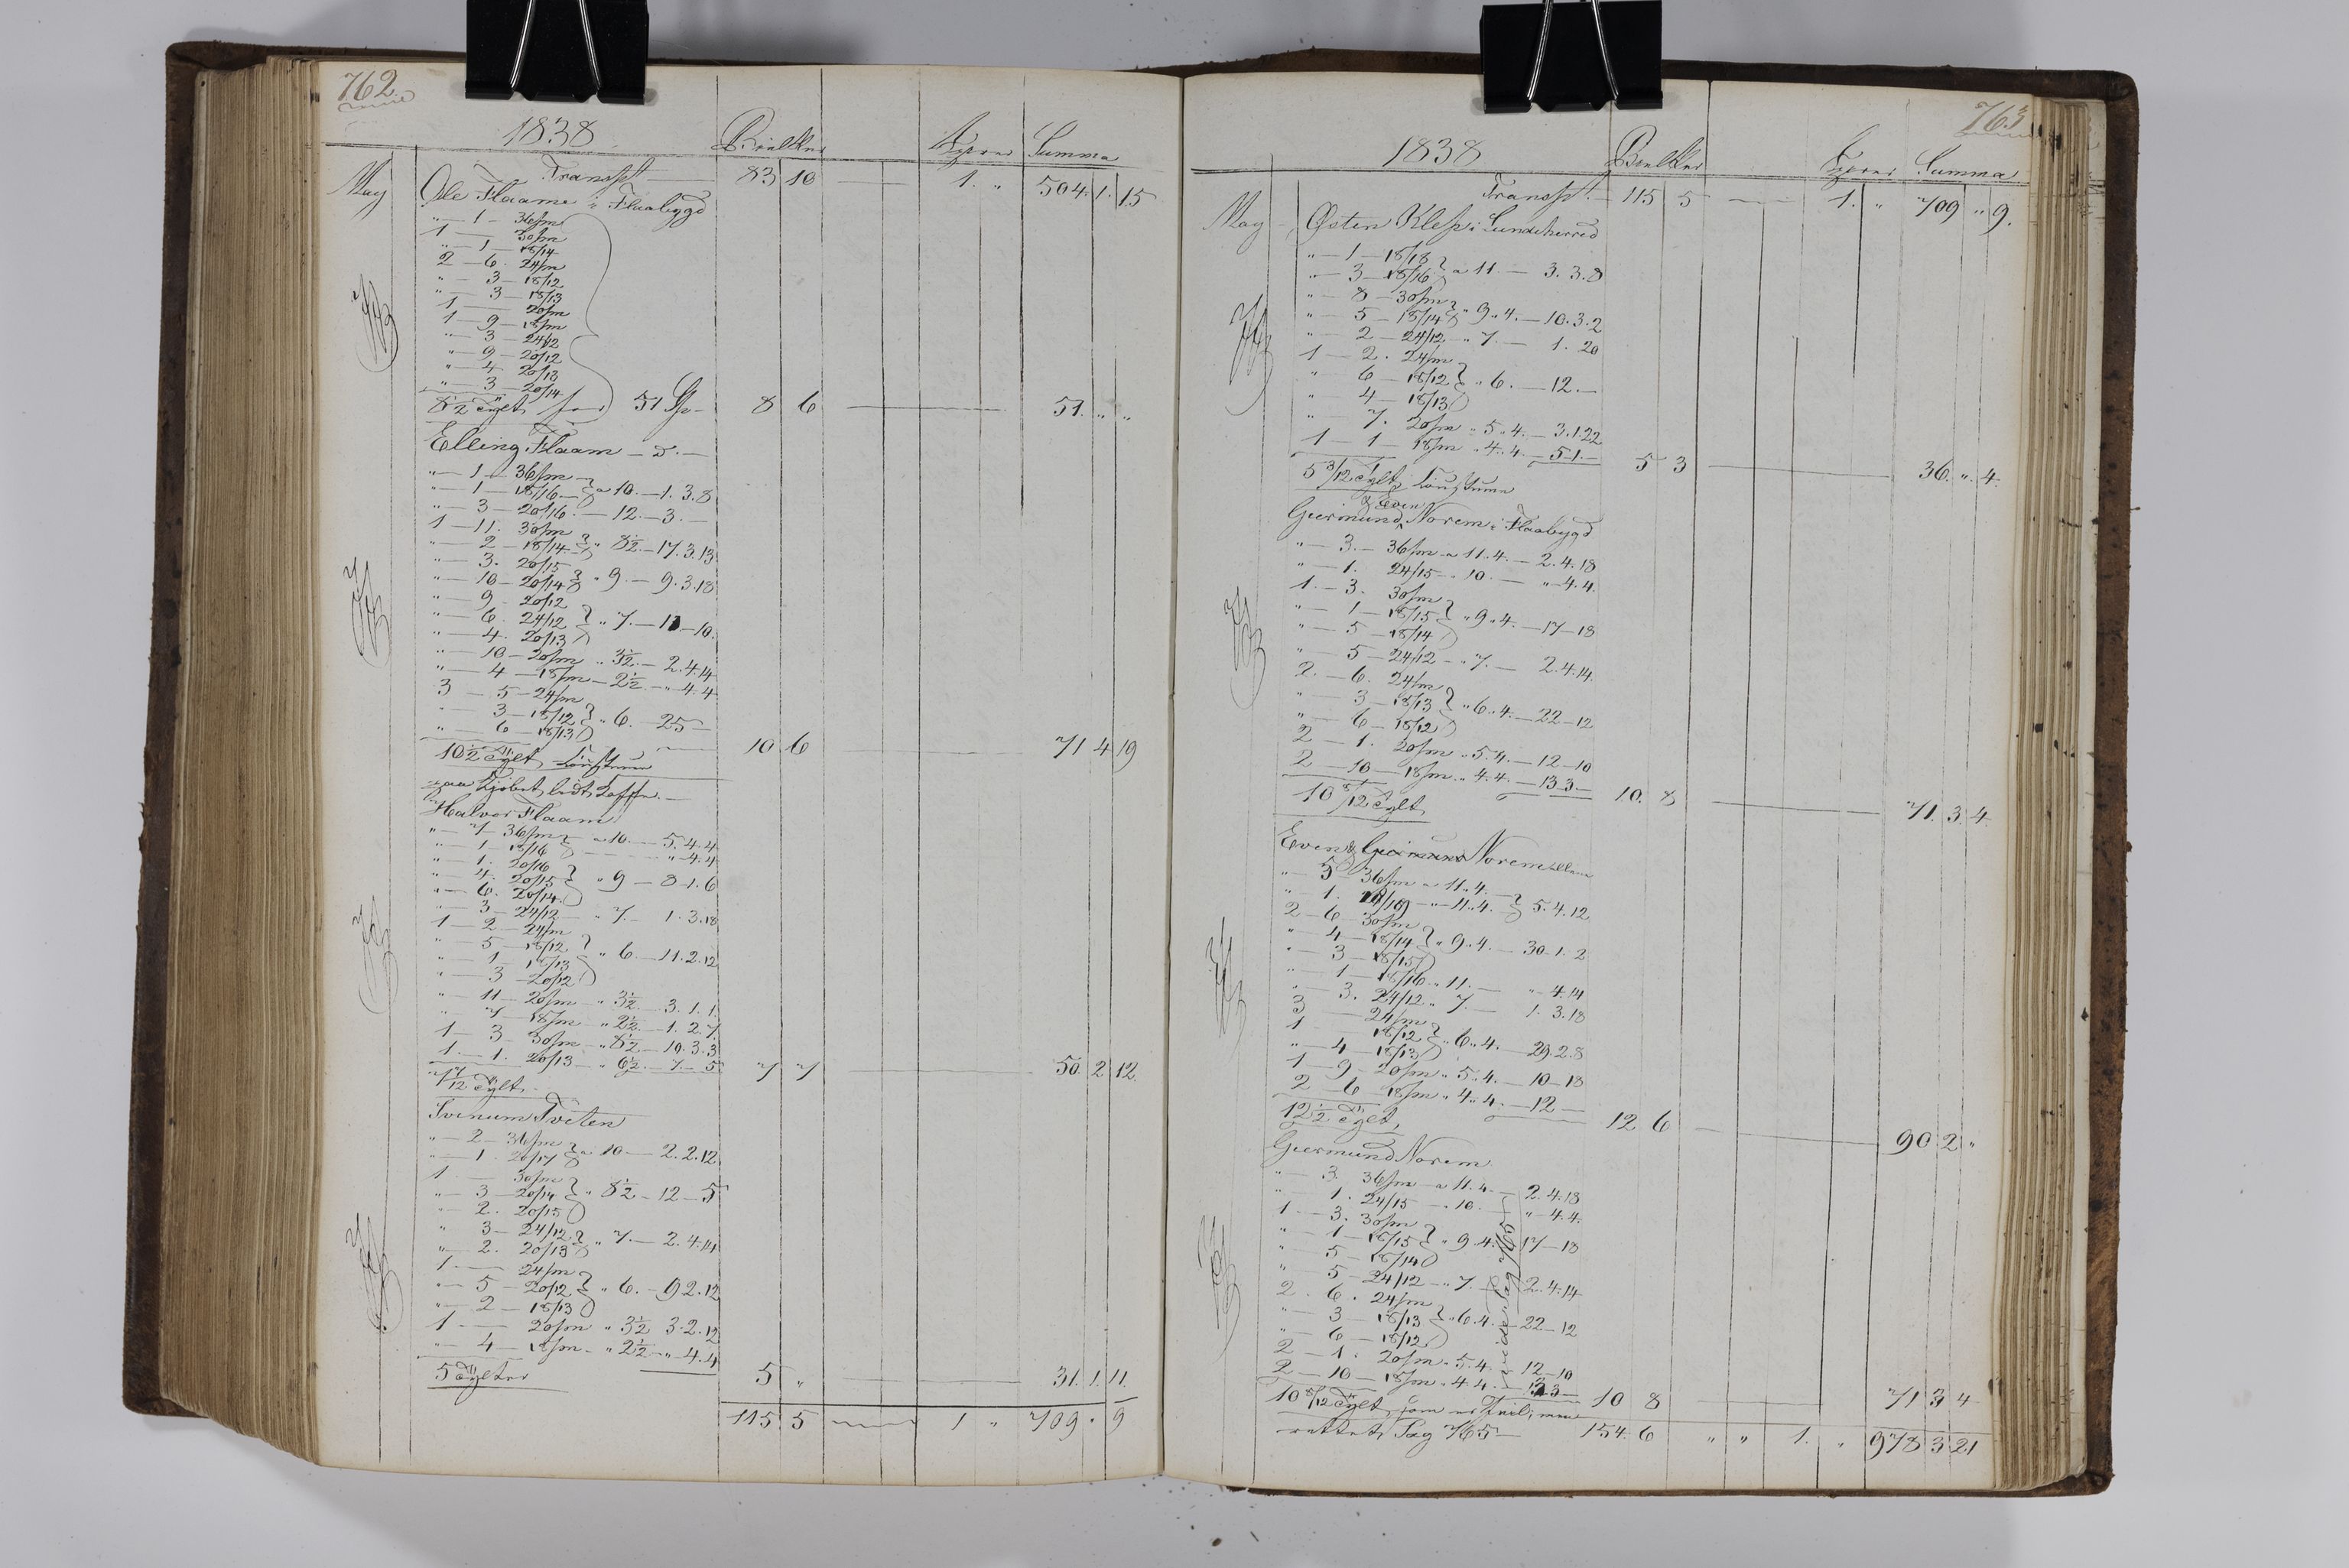 762
1838 Bielkker Summa
May Transpt 83 10 1. " 504. 1. 15
Ole Flaame i Flaabygd
" — 1 — 36/m
1 — 30/m
" — 1 — 18/14
2 — 6. 24/m
" — 3 — 18/12
" — 3 — 18/13
1 — 20/m
1 — 9 — 18/m
" — 3 — 24/12
" — 9 — 20/12
" — 4 — 20/13
" — 3 — 20/14
8½ Tylt for 51 Sp — 8 6 51. " "
Elling Flaam — d. —
" — 1 — 36/m
" — 1 — 18/16 — a 10. — 1. 3. 8
" — 3 — 20/16. — 12. — 3. —
1 — 11. 30/m
" — 2 — 18/14 " 8½. — 17. 3. 13
" — 3. 20/15
" — 10 — 20/14 " 9. — 9. 3. 18
" — 9 — 20/12
" — 6. 24/12 " 7. — 11 — 10.
" — 4. 20/13
" — 10 — 20/m " 3½. — 2. 4. 14
" — 4 — 18/m — 2½ — " 4. 4
3 — 5 — 24/m
" — 3 — 18/12 " 6. — 25 —
" 6 — 18/13
10½ Tylt 10 6 71 4 19
Halvor Flaam
" — 7 — 36/m a 10 — 5. 4. 4
" — 1 — 18/16 " 4. 4
" — 1. 20/16
" — 4. 20/15 " 9 — 8. 1. 6
" — 6. 20/14
" — 3 — 24/12 — " 7. — 1. 3. 18
1 — 2 — 24/m
" — 5 — 18/12
" — 1 — 18/13 " 6 — 11. 2. 12
" — 3 — 20/12
" — 11 — 20/m " 3½ — 3. 1. 1
" — 7 — 18/m " 2½ — 1. 2. 7.
1 — 3 — 30/m " 8½ — 10. 3. 3
1. — 1. 20/13 " 6½. — 7. — 5
7 7/12 Tylt 7 7 50. 2 12.
Svenum Tveten
" — 2 — 36/m
" — 1. 20/17 a 10 — 2. 2. 12
1 — 30/m
" — 3 — 20/14 " 8½ — 12 — 5
" — 2. 20/15
" 3 — 24/12
" — 2. 20/13 " 7. — 2. 4. 14
1. — 24/m
" — 5 — 20/12 " 6. — 9 2. 12
" — 2 — 18/13
1. — 20/m " 3½ 3. 2. 12
" — 4 — 18/m — " 2½ — " 4. 4
5 Tylter 5 " 31. 1. 11.
115 5 1 " 709 " 9
763
1838 Bielkker Summa
Transpt. — 115 5 1. " 709 " 9.
May Østen Klep i Lundeherred
" — 1 — 18/18
" — 3 — 18/16 a 11 — 3. 3. 8
" — 8 — 30/m
" — 5 — 18/14 " 9. 4. — 10. 3. 2
" — 2 — 24/12 " 7. — 1. 20
1 — 2. 24/m
" — 6 — 18/12 " 6. — 12. —
" — 4 — 18/13
" — 7. 20/m " 5. 4. — 3. 1. 22
1 — 1 — 18/m " 4. 4. — 5 1. —
5 3/12 Tylt 5 3 36. " 4.
& Even
Geermund Norem i Flaabygd
" — 3. — 36/m a 11. 4. — 2. 4. 18
" — 1. 24/15 — " 10. — " — 4. 4.
1. — 3. 30/m
" — 1 — 18/15 " 9. 4. — 17 — 18
" — 5 — 18/14
" — 5 — 24/12 — " 7. — 2. 4. 14.
2. — 6. 24/m
" — 3 — 18/13 " 6. 4. — 22 — 12
" — 6 — 18/12
2 — 1. 20/m " 5. 4. — 12 — 10
2 — 10 — 18/m " 4. 4. — 13. 3 —
10 8/12 Tylt 10. 8 71. 3. 4.
Even & Geermund Norem
" — 5 — 36/m a 11. 4.
" — 1. — " 11. 4. 5. 4. 12
2 — 6 — 30/m
" — 4 — 18/14 " 9. 4. — 30. 1. 2
" — 3 — 18/15
" — 1 — 18/16 " 11. — " 4. 14
" — 3. 24/12 " 7. — 1. 3. 18
3 — 24/m
1 — 18/12 " 6. 4. — 29. 2. 8
" — 4 — 18/13
1 — 9 — 20/m " 5. 4. — 10 — 18
2 — 6 — 18/m " 4. 4. — 12 —
12½ Tylt, 12 6 90 2 "
Geermund Norem
" — 3. 36/m — a 11. 4. — 2. 4. 18
" 1. 24/15 — " 10. — " — 4. 4.
1 — 3. 30/m
" — 1 — 18/15 " 9. 4. 17 — 18
" — 5 — 18/14
" 5 — 24/12 — " 7. 2. 4. 14
2. 6. 24/m
" — 3 — 18/13 " 6. 4. — 22 — 12
" — 6 — 18/12
2 — 1. 20/m " 5. 4. 12 — 10
2 — 10 — 18/m " 4. 4. 13 3 —
vide Pag 765
10 8/12 Tylt, som er 10 8 71 3 4
rettet Pag 765 — 154 6 " " 1. " 978 3 21